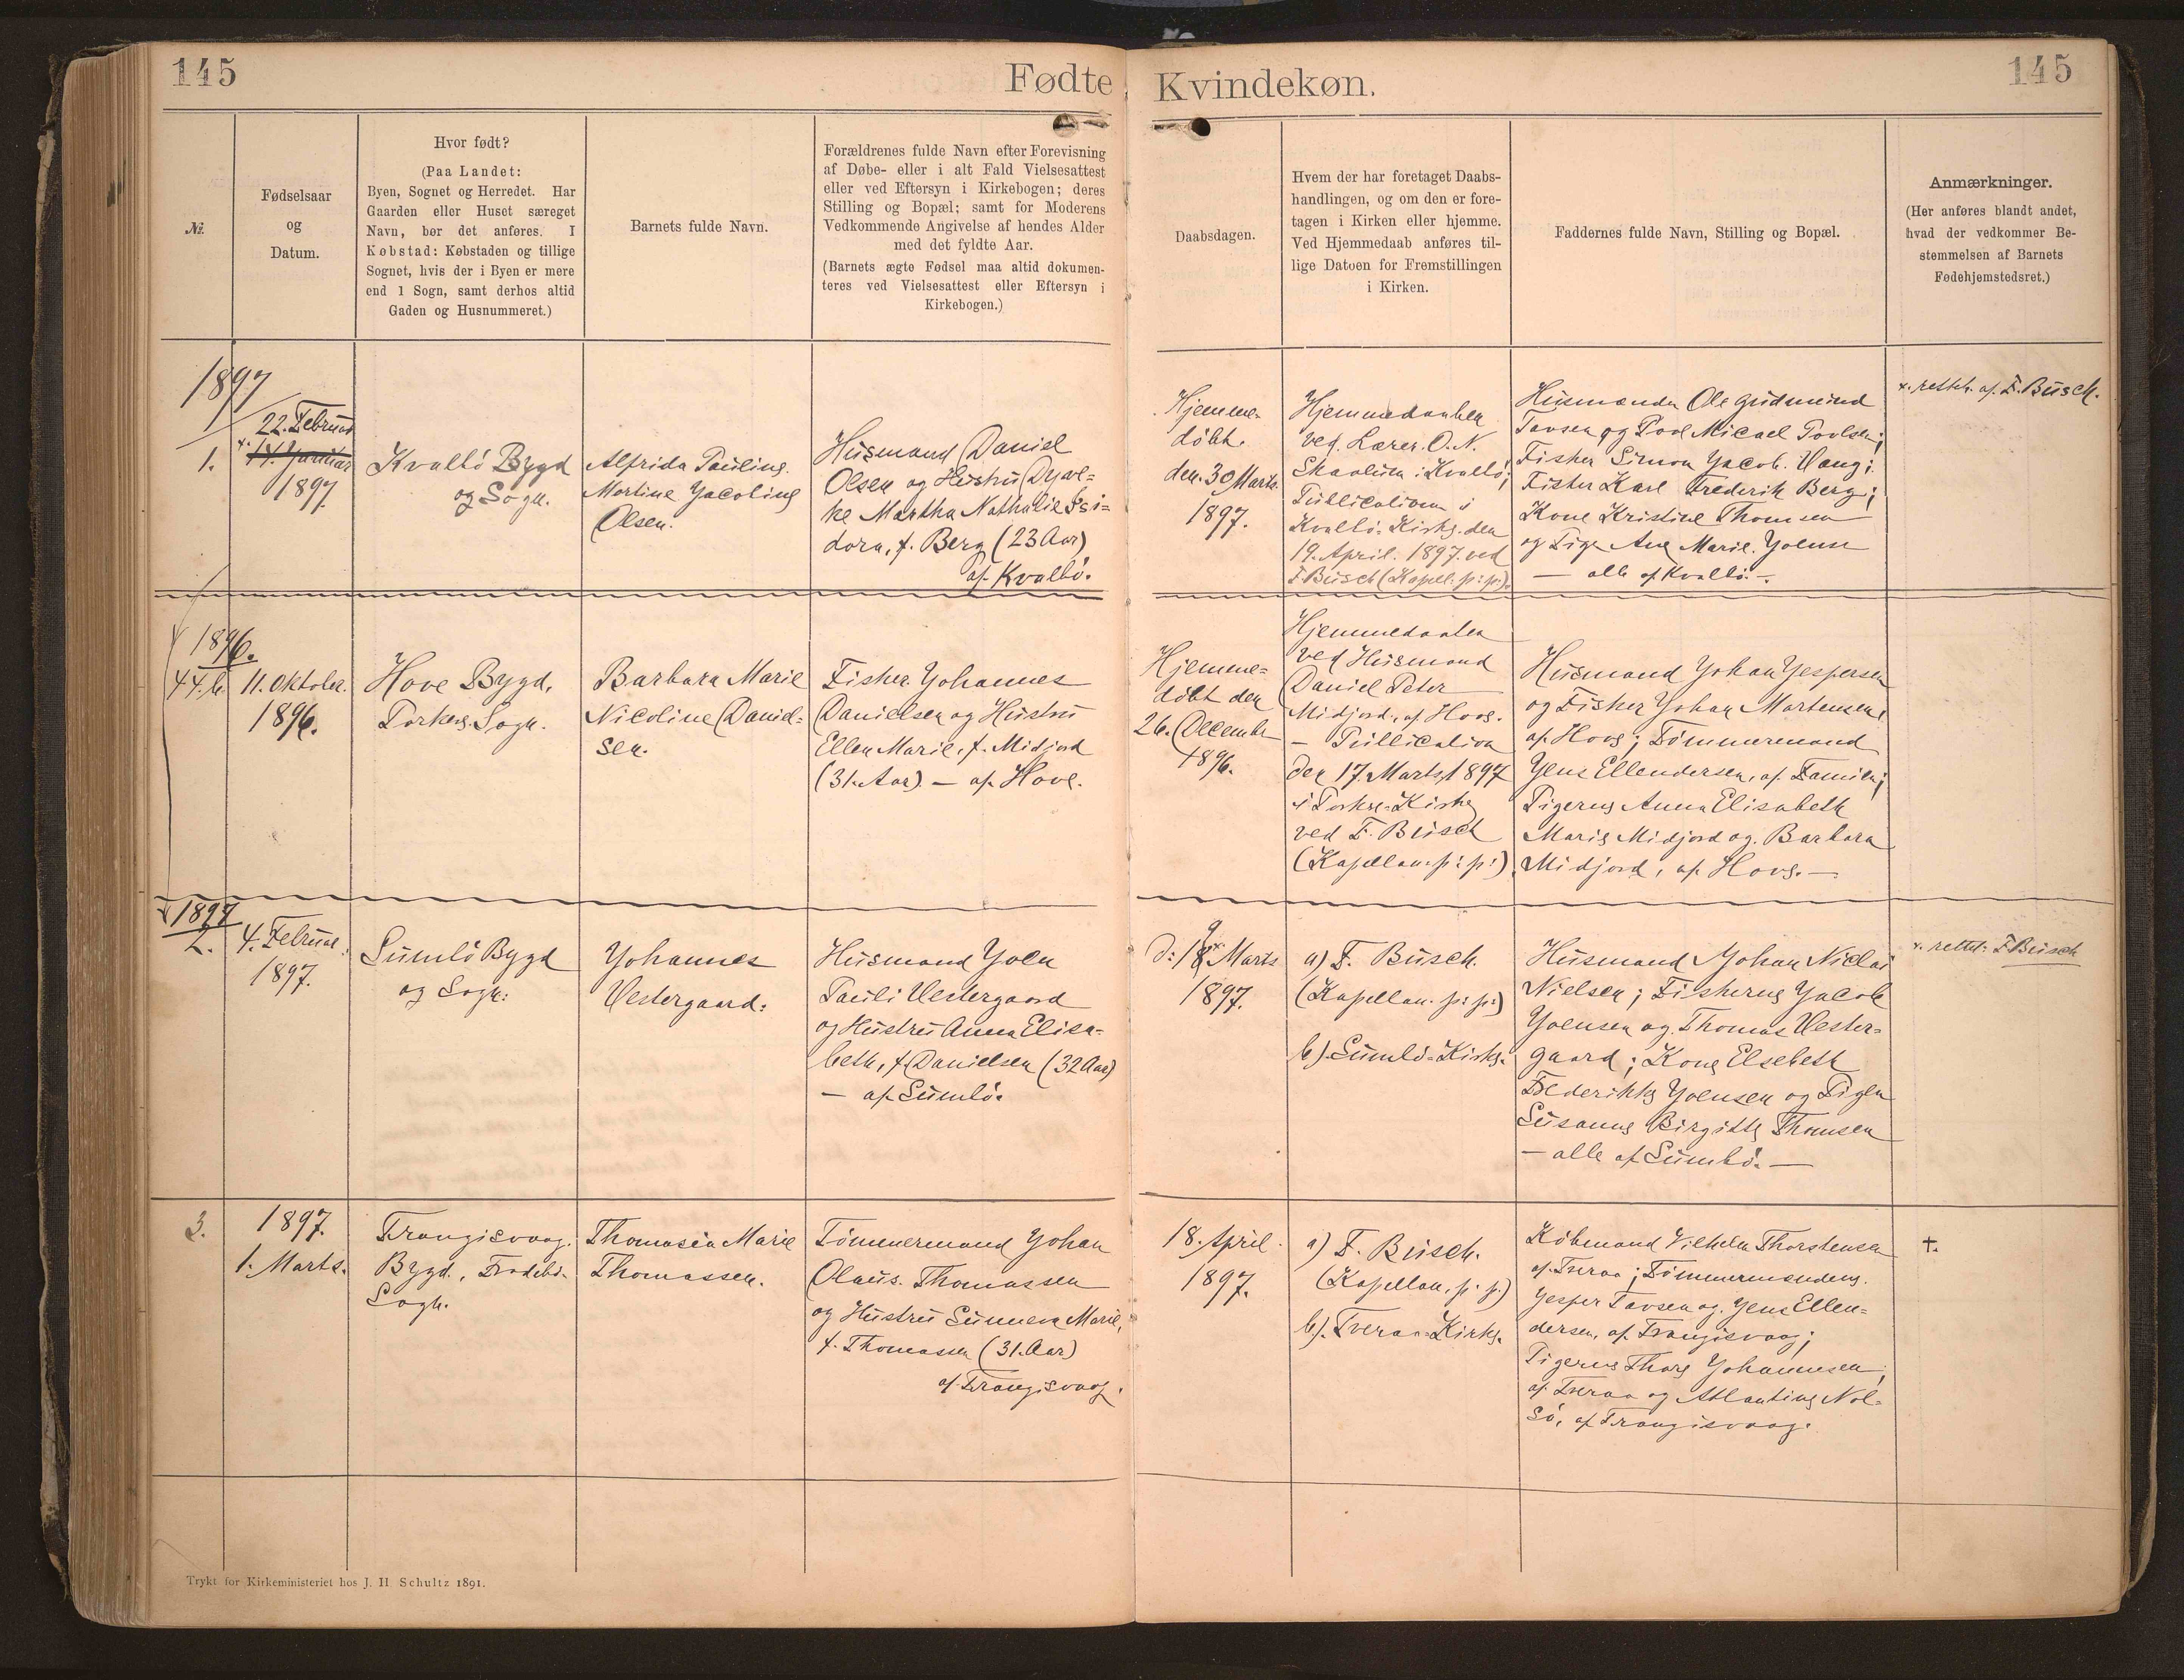 145
Fødte
Kvindekøn.
145
Nr.
Fødselsaar
og
Datum.
Hvor født?
(Paa Landet:
Byen, Sognet og Herredet. Har
Gaarden eller Huset særeget
Navn, bør det anføres. I
Købstad: Købstaden og tillige
Sognet, hvis der i Byen er mere
end 1 Sogn, samt derhos altid
Gaden og Husnummeret.)
Barnets fulde Navn.
Forældrenes fulde Navn efter Forevisning
af Døbe- eller i alt Fald Vielsesattest
eller ved Eftersyn i Kirkebogen; deres
Stilling og Bopæl; samt for Moderens
Vedkommende Angivelse af hendes Alder
med det fyldte Aar.
(Barnets ægte Fødsel maa altid dokumen-
teres ved Vielsesattest eller Eftersyn i
Kirkebogen.)
Daabsdagen.
Hvem der har foretaget Daabs-
handlingen, og om den er fore-
tagen i Kirken eller hjemme.
Ved Hjemmedaab anføres til-
lige Datoen for Fremstillingen
i Kirken.
Faddernes fulde Navn, Stilling og Bopæl.
Anmærkninger.
(Her anføres blandt andet,
hvad der vedkommer Be-
stemmelsen af Barnets
Fødehjemstedsret.)
1897
1.
22. Februar
x. 14. Januar
1897.
Kvalbö Bygd
og Sogn.
Alfrida Pauline
Martine Jacobine
Olsen.
Husmand Daniel
Olsen og Hustru Dyve-
ke Martha Nathalie Isi-
dora, f. Berg (23 Aar)
af Kvalbö.
Hjemme-
döbt.
den 30 Marts
1897.
Hjemmedaaben
ved Lærer O. N.
Skaalum i Kvalbö;
Publicationen i
Kvalbö-Kirke den
19. April 1897. ved
F. Busch (Kapell. p: p:).
Husmændn Ole Gudmund
Tavsen og Povl Micael Povlsen;
Fisker Simon Jacob Vang;
Fisker Karl Frederik Berg;
Kone Kristine Thomsen
og Pige Ane Marie Joensen
— alle af Kvalbö. —
x. rettet. af F. Busch.
1896.
44. b.
11. Oktober.
1896.
Hove Bygd,
Porkeri Sogn.
Barbara Marie
Nicoline Daniel-
sen.
Fisker Johannes
Danielsen og Hustru
Ellen Marie, f. Midjord
(31. Aar). — af Hove.
Hjemme-
döbt den
26. December
1896.
Hjemmedaaben
ved Husmand
Daniel Peter
Midjord, af Hove.
— Publication
den 17. Marts 1897
i Porkeri-Kirke
ved F. Busch
(Kapellan. p: p:)
Husmand Johan Jespersen
og Fisker Johan Mortensen,
af Hove; Tömmermand
Jens Ellendersen, af Famien;
Pigerne Anna Elisabeth
Marie Midjord og Barbara
Midjord, af Hove. —
1897
2.
4. Februar.
1897.
Sumbö Bygd
og Sogn:
Johannes
Vestergaard:
Husmand Joen
Pauli Vestergaard
og Hustru Anna Elisa-
beth, f. Danielsen (32 Aar)
— af Sumbö.
Marts
1897.
a) F. Busch.
(Kapellan. p: p:)
b) Sumbö-Kirke.
Husmand Johan Niclai
Nielsen; Fiskerne Jacob
Joensen og Thomas Vester-
gaard; Kone Elsebeth
Frederikke Joensen og Pigen
Susanne Birgitte Thomsen
— alle af Sumbö. —
x. rettet: F. Busch
3.
1897.
1. Marts.
Trangisvaag.
Bygd., Frodebö-
Sogn.
Thomasia Marie
Thomassen.
Tömmermand Johan
Olaus Thomassen
og Hustru Sunneva Marie,
f. Thomassen (31. Aar)
af Trangisvaag.
18. April.
1897.
a) F. Busch.
(Kapellan, p: p:)
b). Tveraa-Kirke.
Köbmand Vilhelm Thorstensen
af Tveraa; Tömmermændene
Jesper Tavsen og Jens Ellen-
dersen, af Trangisvaag;
Pigerne Thora Johannesen,
af Tveraa og Atlantine Nol-
sö, af Trangisvaag.
†.
Trykt for Kirkeministeriet hos J. H. Schultz 1891.